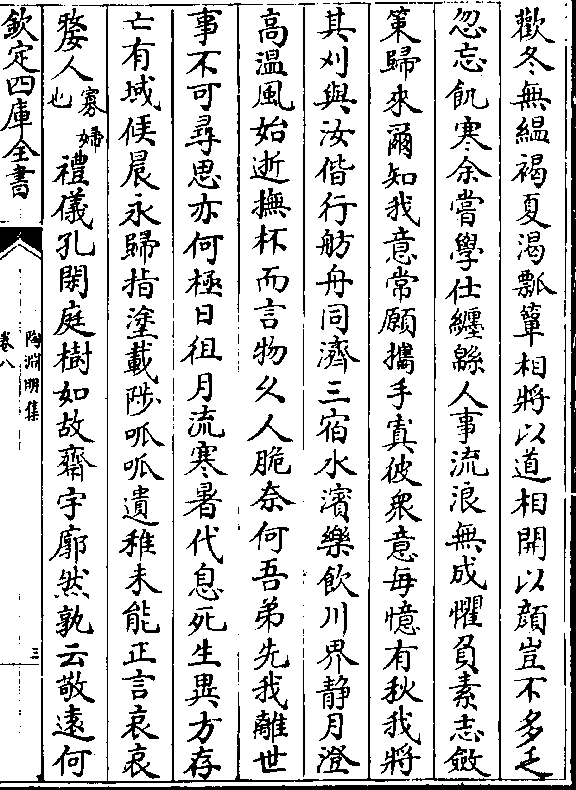 歡冬無緼褐夏渴瓢簞相將以道相開以顔豈不多乏
忽忘飢寒余嘗學仕纏緜人事流浪無成懼負素志斂
策歸來爾知我意常願攜手寘彼衆意毎憶有秋我將
其刈與汝偕行舫舟同濟三宿水濱樂飲川界静月澄
高溫風始逝撫杯而言物久人脆奈何吾弟先我離世
事不可尋思亦何極日徂月流寒暑代息死生異方存
亡有域候晨永歸指塗載陟呱呱遺稚未能正言哀哀
嫠人寡婦也禮儀孔閑庭樹如故齋宇廓然孰云敬遠何
欽定四庫全書
陶淵明集
卷八
三